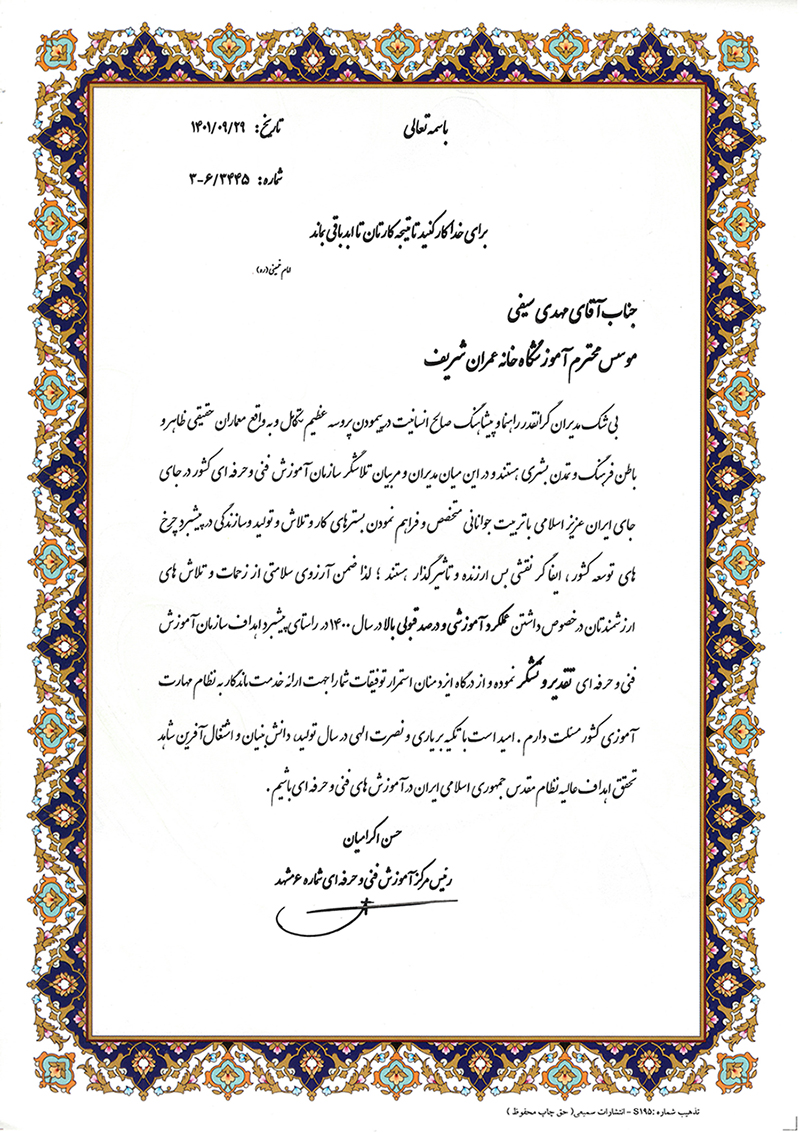 باسمه تعالی
تاریخ: ۱۴۰۱/۰۹/۲۹
شماره: ۳-۶/۳۴۴۵
برای خدا کار کنید تا نتیجه کارتان تا ابد باقی بماند
امام خمینی (ره)
جناب آقای مهدی سیفی
موسس محترم آموزشگاه خانه عمران شریف
بی شک مدیران گرانقدر راهنما و پیشاهنگ صالح انسانیت در پیمودن پروسه عظیم تکامل و به واقع معماران حقیقی ظاهر و
باطن فرهنگ و تمدن بشری هستند و در این میان مدیران و مربیان تلاشگر سازمان آموزش فنی و حرفه ای کشور در جای
جای ایران عزیز اسلامی با تربیت جوانانی متخصص و فراهم نمودن بسترهای کار و تلاش و تولید و سازندگی در پیشبرد چرخ
های توسعه کشور ، ایفاگر نقشی بس ارزنده و تاثیرگذار هستند ؛ لذا ضمن آرزوی سلامتی از زحمات و تلاش های
ارزشمندتان در خصوص داشتن عملکرد آموزشی و درصد قبولی بالا در سال ۱۴۰۰ در راستای پیشبرد اهداف سازمان آموزش
فنی و حرفه ای تقدیر و تشکر نموده و از درگاه ایزد منان استمرار توفیقات شما را جهت ارائه خدمت ماندگار به نظام مهارت
آموزی کشور مسئلت دارم . امید است با تکیه بر یاری و نصرت الهی در سال تولید، دانش بنیان و اشتغال آفرین شاهد
تحقق اهداف عالیه نظام مقدس جمهوری اسلامی ایران در آموزش های فنی و حرفه ای باشیم .
حسن اکرامیان
رئیس مرکز آموزش فنی و حرفه ای شماره ۶ مشهد
تذهیب شماره :S۱۹۵ - انتشارات سمیعی( حق چاپ محفوظ )